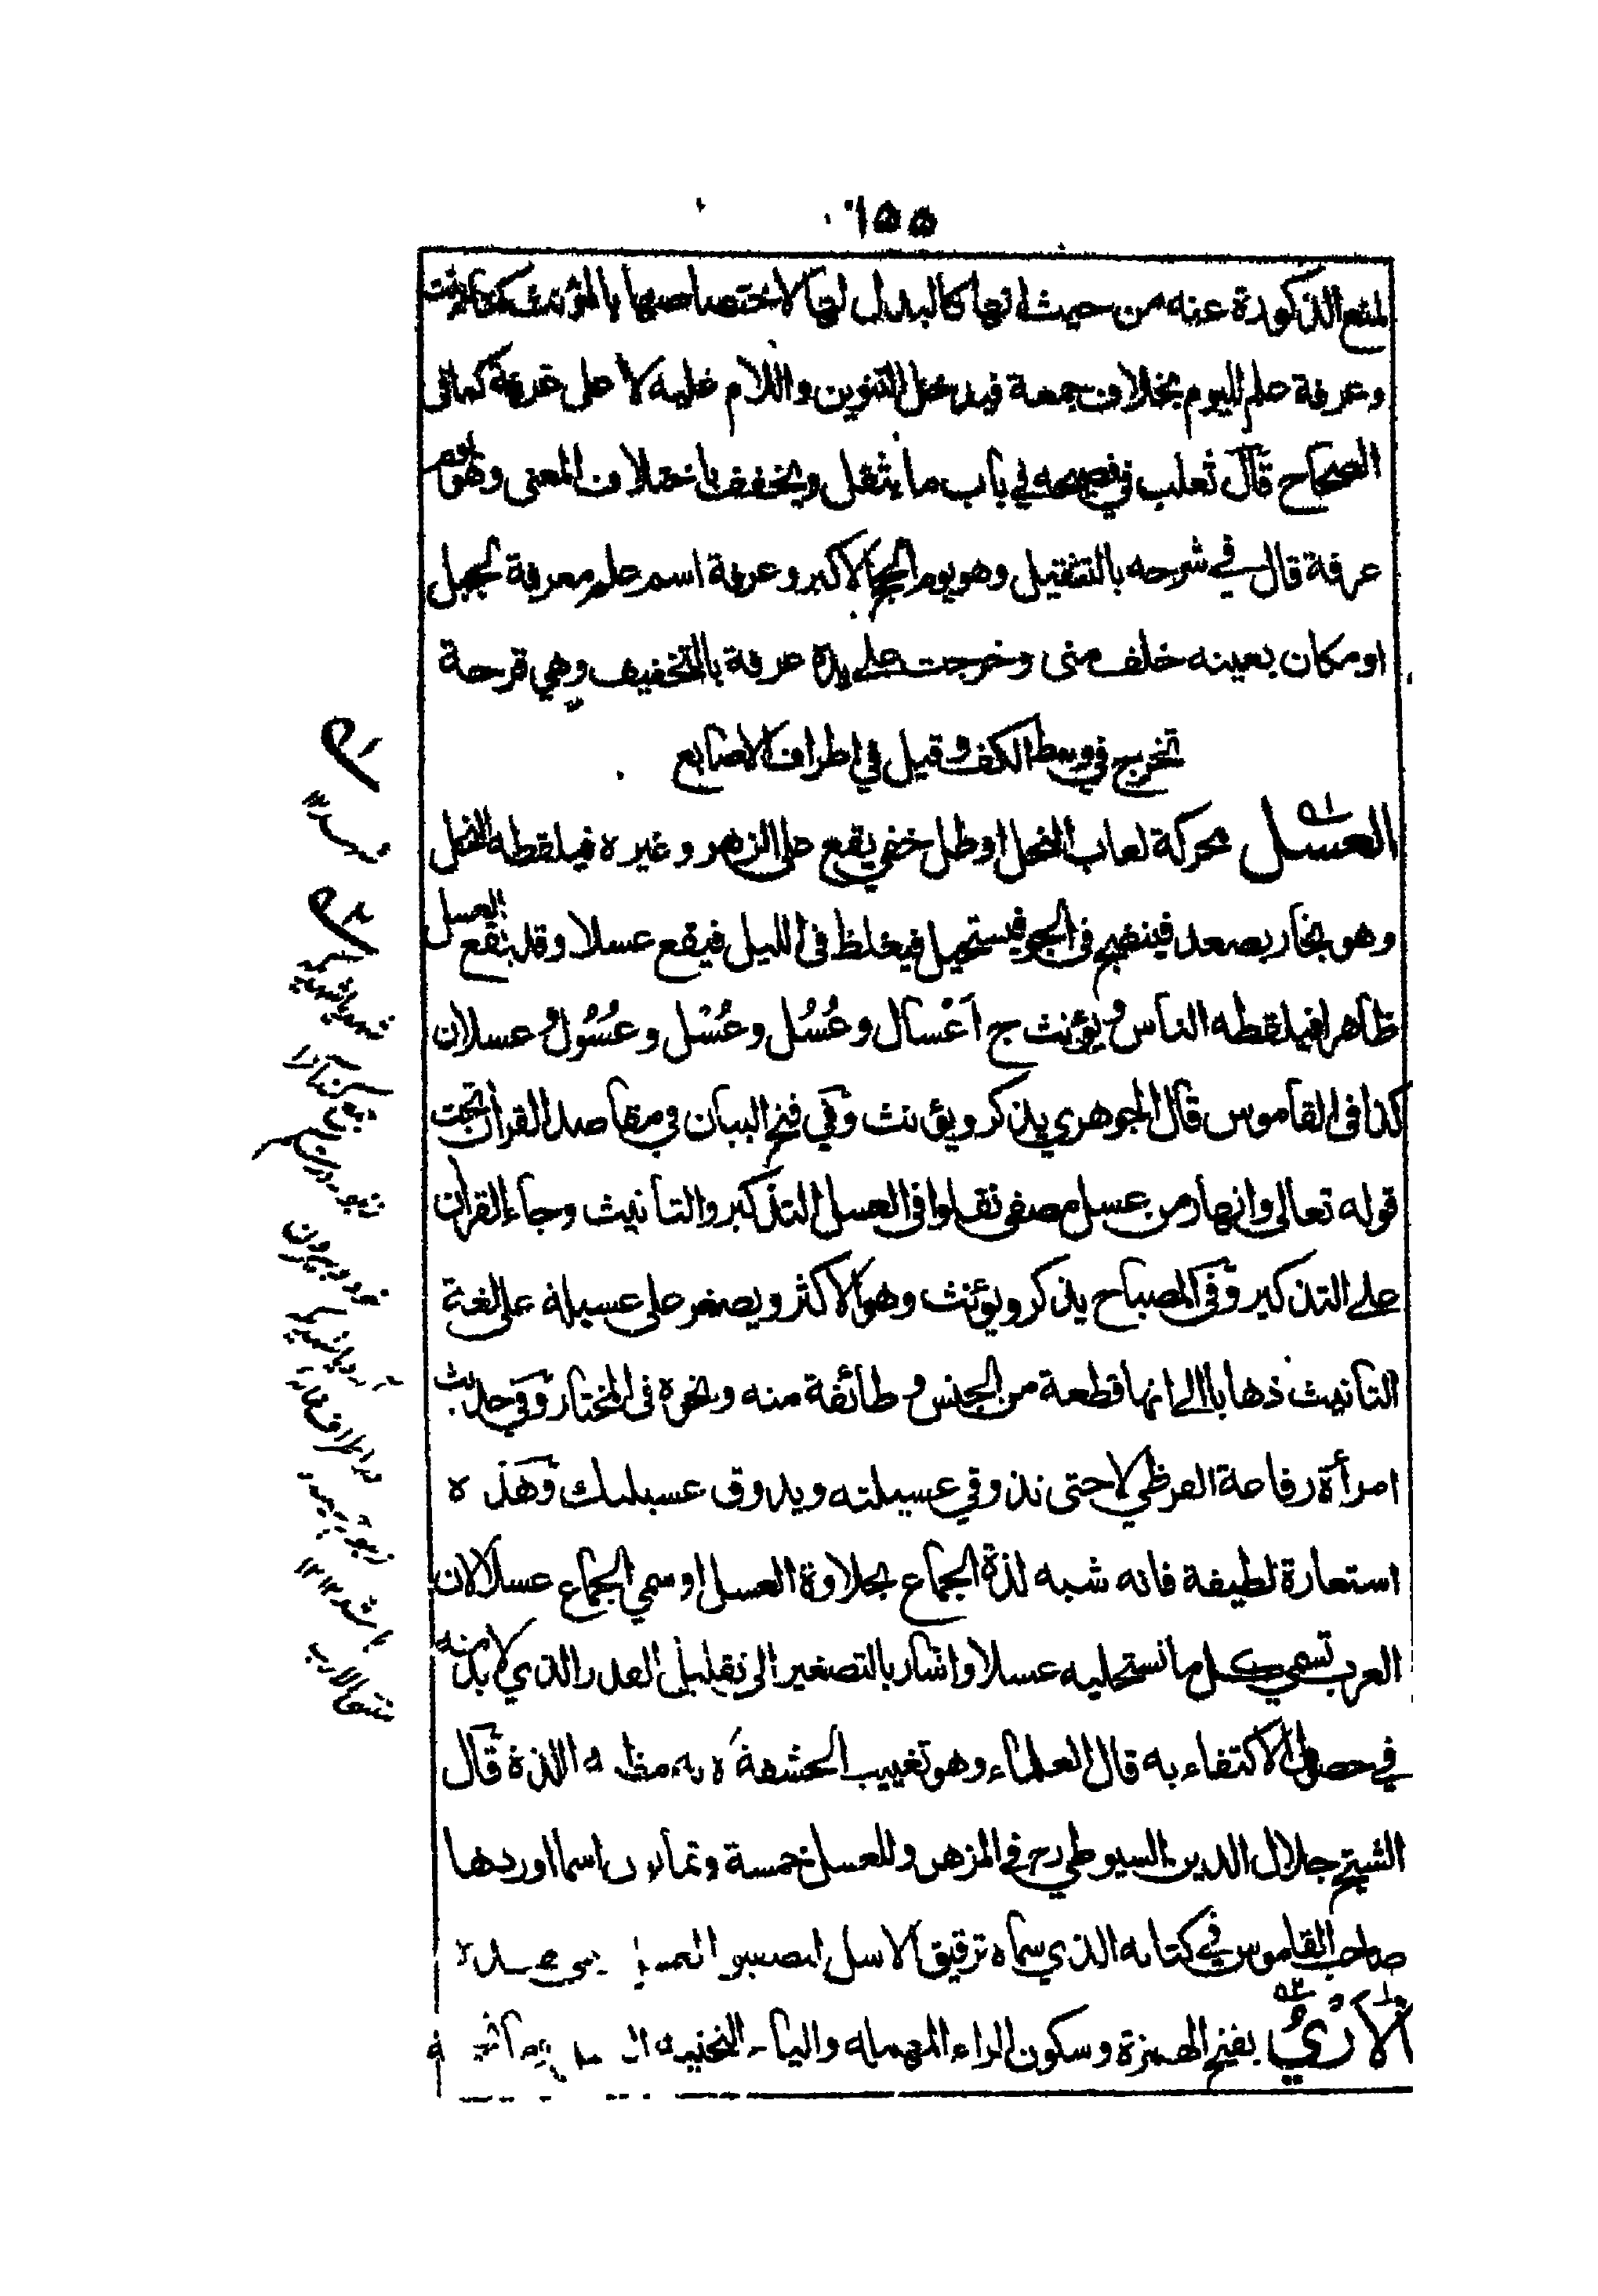 ١٥٥
لمنع الذكورة عنه من حيث انها كالبدل لها لاختصاصها بالمؤنث
وعرفة علم لليوم بخلاف جمعة فيدخل التنوين واللام عليه لا على عرفة كما في
الصحاح قال ثعلب في فصيحه في باب ما يثقل ويخفف باختلاف المعنى وهو يوم
عرفة قال في شرحه بالتثقيل وهو يوم الحج الاكبر وعرفة اسم علم معرفة لجبل
او مكان بعينه خلف منى وخرجت على يده عرفة بالتخفيف وهي قرحة
تخرج في وسط الكف وقيل في اطراف الاصابع
العسل محركة لعاب النحل او طل خفي يقع على الزهر وغيره فيلقطه النحل
وهو بخار يصعد فينضج في الجو فيستحيل فيغلظ في الليل فيقع عسلا وقد يقع العسل
ظاهرا فيلقطه الناس ويؤنث ج اَعْسال وعُسُل وعُسْل وعُسُول وعسلان
كذا في القاموس قال الجوهري يذكر ويؤنث وفي فتح البيان في مقاصد القرآن تحت
قوله تعالى وانهار من عسل مصفى نقلوا في العسل التذكير والتأنيث وجاء القرآن
على التذكير وفي المصباح يذكر ويؤنث وهو الاكثر ويصغر على عسيلة على لغة
التأنيث ذهابا الى انها قطعة من الجنس وطائفة منه ونحوه في المختار وفي حديث
امرأة رفاعة القرظي لا حتى تذوقي عسيلته ويذوق عسيلتك وهذه
استعارة لطيفة فانه شبه لذة الجماع بحلاوة العسل او سمي الجماع عسلا لان
العرب تسمي كل ما تستحليه عسلا واشار بالتصغير الى تقليل القدر الذي لا بد منه
في حصول الاكتفاء به قال العلماء وهو تغييب الحشفة لانه مظنة اللذة قال
الشيخ جلال الدين السيوطي رح في المزهر وللعسل خمسة وثمانون اسما اوردها
صاحب القاموس في كتابه الذي سماه ترقيق الاسل لتصفيق العسل
الْاَرْيُ بفتح الهمزة وسكون الراء المهملة والياء التحتية